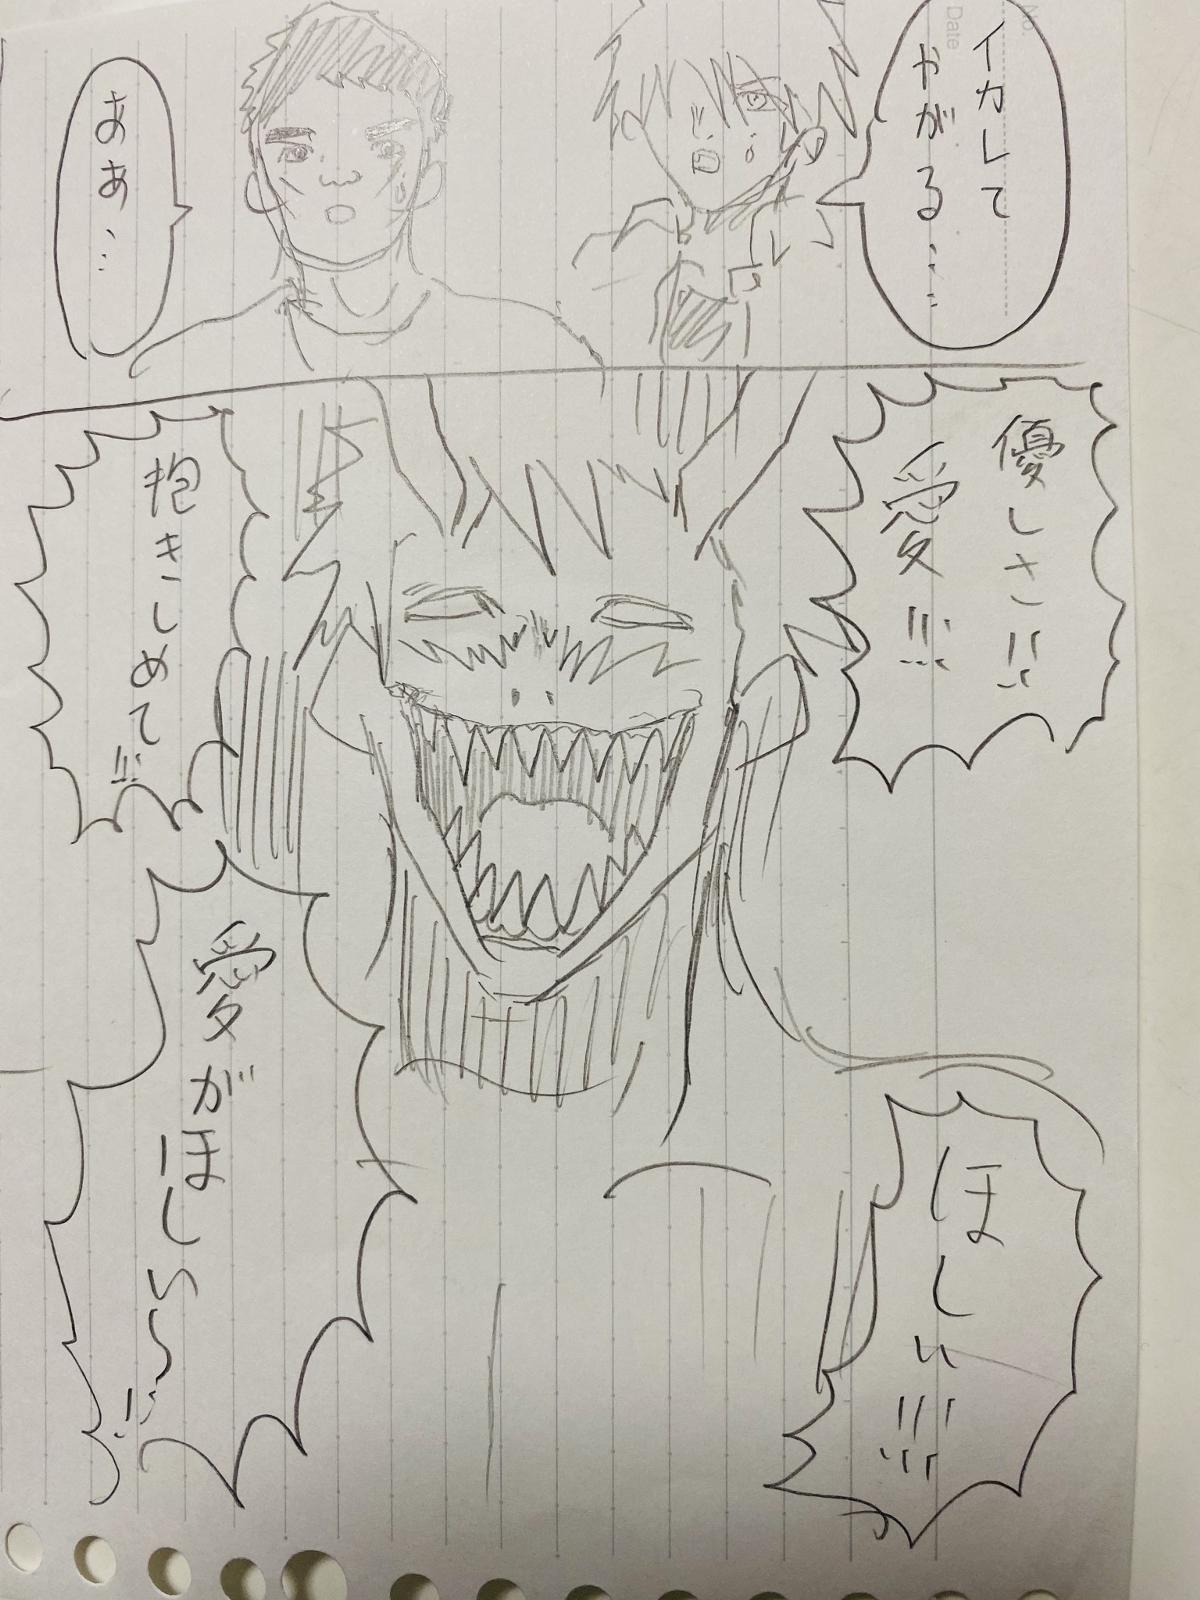 No.
Date
イカして
やがる…
ああ…
優しさ!!
愛!!!
抱きしめて!!
ほ
しい!!!
愛がほしい〜!!